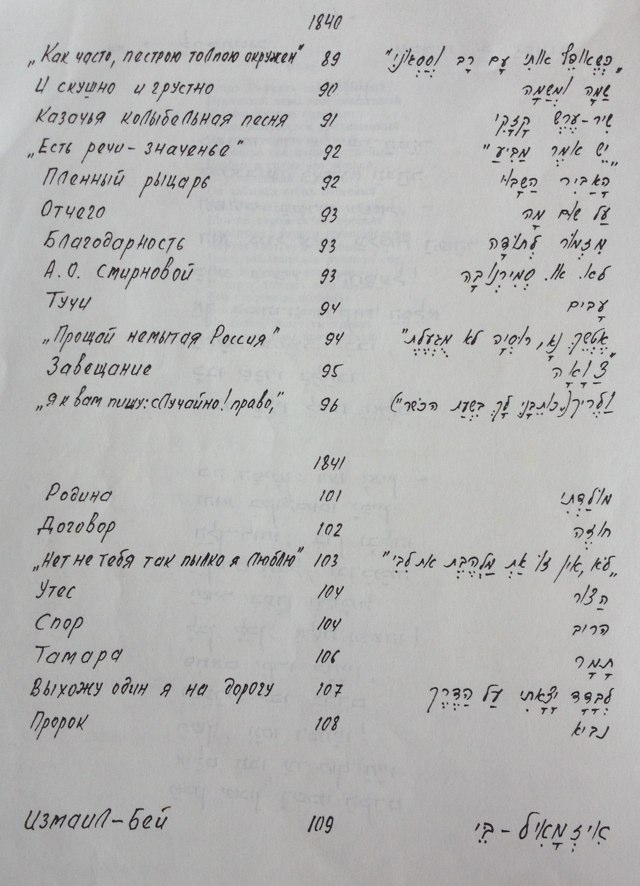 1840
„Как часто, пестрою толпою окружен" 89
И скушно и грустно 90
Казачья колыбельная песня 91 שִיר-עֶרֶשׂ קָזָקִי
„Есть речи - значенье" 92 "יֵש אֹמֶר
Пленный рыцарь 92 הָאַבִּיר הַשָבוּי
Отчего 93 עַל שום מָה
Благодарность 93 מִזְמוֹר לְתוֹדָה
А.О. Смирновой 93 לא. או. סְמִירְנוֹבָה
Тучи 94 עָבִים
„Прощай немытая Россия" 94 רוּסִיָה לֹא
Завещание 95 צַוָאָה
„Я к вам пишу: случайно! право," 96
1841
Родина 101 מוֹלַדְתִּי
Договор 102 חוֹזֶה
„Нет не тебя так пылко я люблю" 103 „לֹא, אֵין זוֹ אַתְ מַלְהֶבֶת אֶת לִבִּי"
Утес 104 הַצוּר
Спор 104 הריב
Тамара 106 תָמָר
Выхожу один я на дорогу 107 לְבָדָד יָצָאתִי עַל הַדֶרֶךְ
Пророк 108 נביא
Измаил - Бей 109 אִיזְמָאִיל - בֵּי